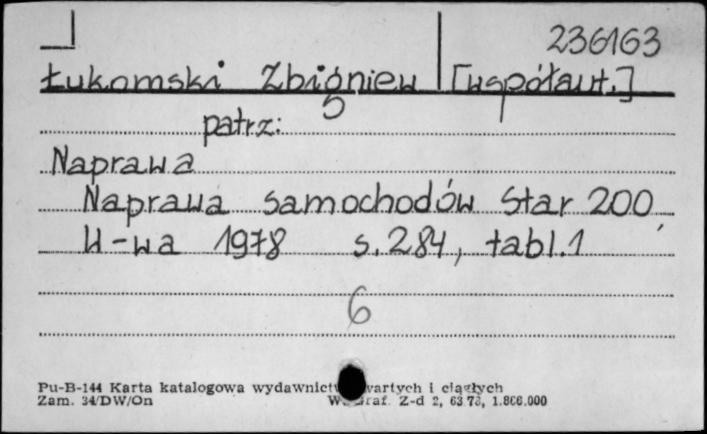 236163
Łukomski Zbigniew [współaut.]
patrz:
Naprawa
Naprawa samochodów Star 200
W-wa 1978 s. 284, tabl. 1
6
Pu-B-144 Karta katalogowa wydawnictw zwartych i ciągłych
Zam. 34/DW/On Z-d 2, 1.866.000